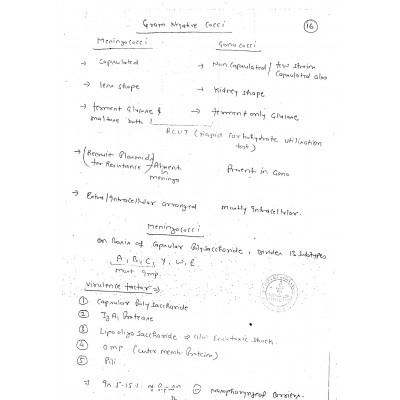 Gram Negative Cocci
16
Meningococci
Gonococci
→ Capsulated
→ Non. Capsulated / few strains Capsulated also
→ lens shape
→ Kidney shape
→ ferment Glucose & maltose both
→ ferment only Glucose
RCUT (Rapid Carbohydrate utilisation test)
→ for Resistance) → Absent in meningo
Present in Gono
→ Extra/Intracellular arranged
mostly Intracellular.
Meningococci
on Basis of Capsular Polysaccharide, divides 13 Subtypes
A, B, C, Y, W,
most Imp.
Virulence factor ⇒
① Capsular Poly Saccharide
② IgA, Protease
③ Lipooligo Saccharide ⇒ Endotoxic shock.
④ OMP (outer memb. Proteins)
⑤ Pili
⇒ In 5-15%